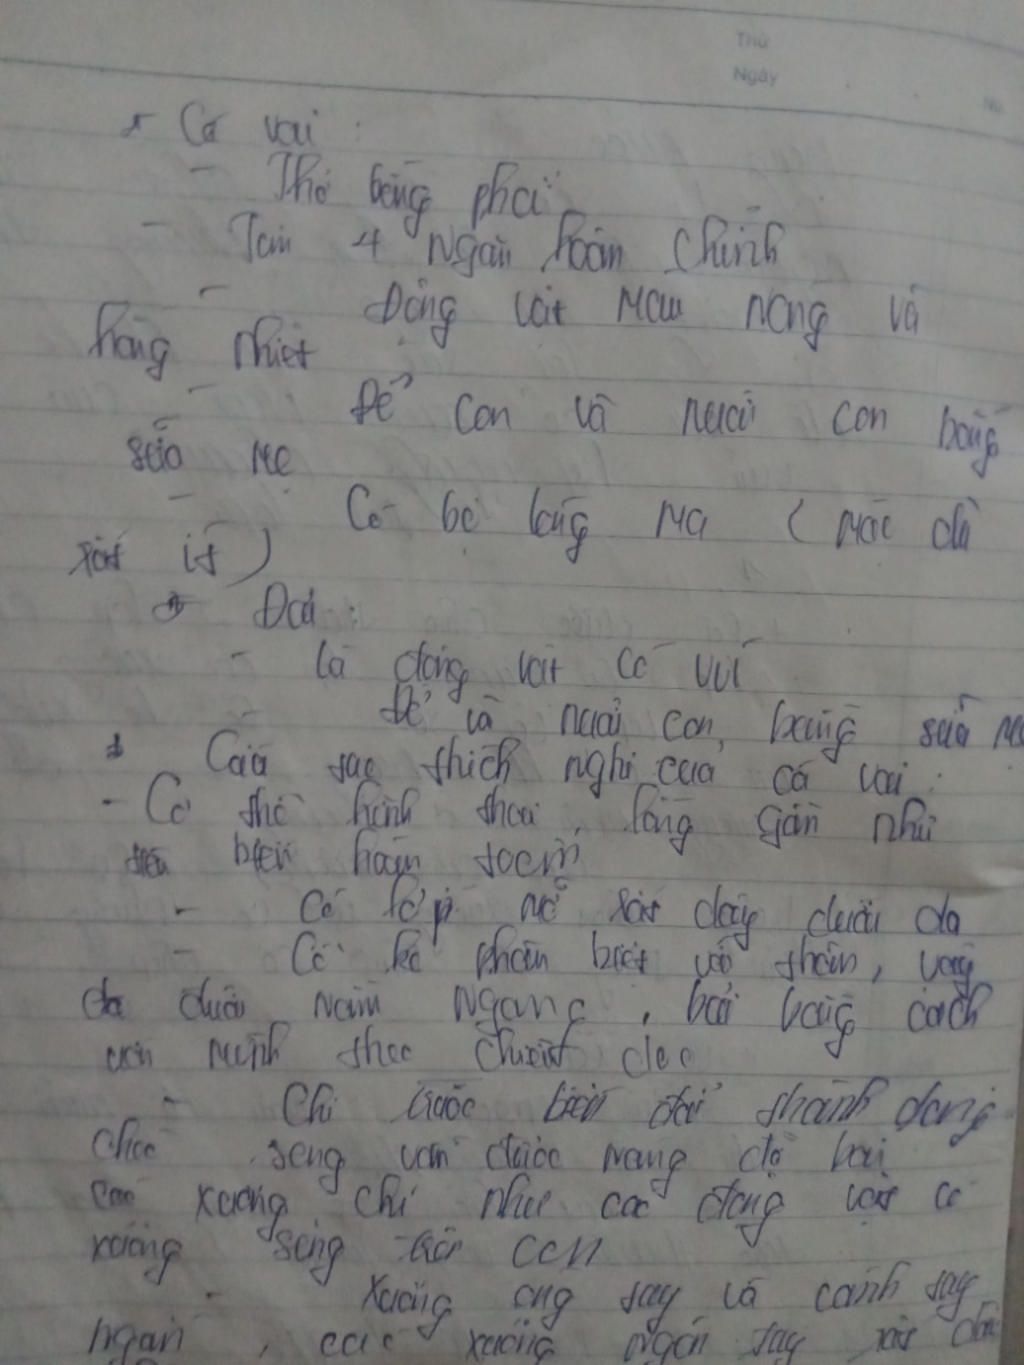 Thứ
Ngày
* Cá voi :
- Thở bằng phổi
- Tim 4 ngăn hoàn chỉnh
- Động vật máu nóng và
hằng nhiệt
- Đẻ con và nuôi con bằng
sữa mẹ
- Có bộ lông mao ( mặc dù
rất ít )
* Dơi :
- là động vật có vú
Đẻ và nuôi con bằng sữa mẹ
thích nghi của cá voi :
- Cơ thể hình thoi , lông gần như
tiêu biến hoàn toàn
- Có lớp mỡ rất dày dưới da
- Cổ không phân biệt với thân , vây
đuôi nằm ngang , bơi bằng cách
uốn mình theo chiều dọc
- Chi trước biến đổi thành dạng
chèo song vẫn được nâng đỡ bởi
các xương chi như các động vật có
xương sống trên cạn
- Xương ống tay và cánh tay
ngắn , các xương ngón tay rất dài